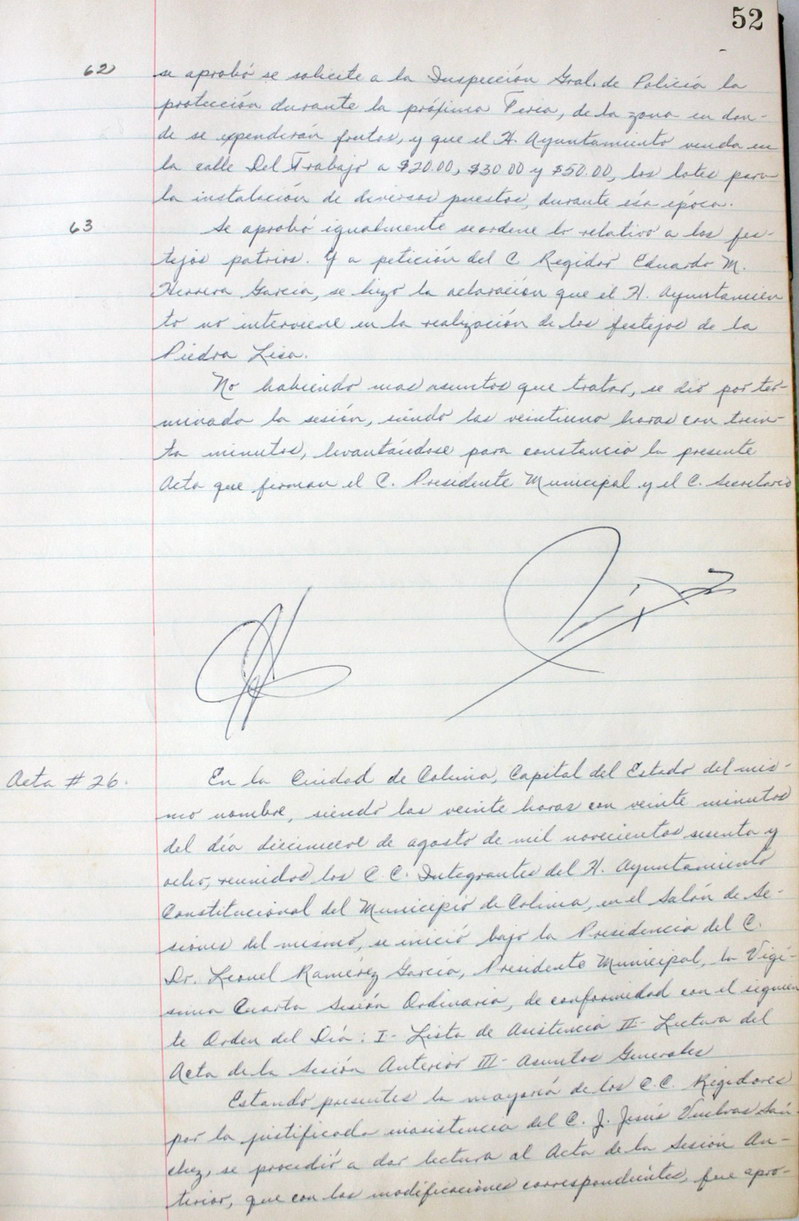 52
62 se aprobó se solicite a la Inspección Gral. de Policía la
protección durante la próxima Feria, de la zona en don-
de se expenderán frutas, y que el H. Ayuntamiento venda en
la calle Del Trabajo a $20.00, $30.00 y $50.00, los lotes para
la instalación de diversos puestos, durante esa época.
63 Se aprobó igualmente se ordene lo relativo a los fes-
tejos patrios. Y a petición del C. Regidor Eduardo M.
Herrera García, se hizo la aclaración que el H. Ayuntamien
to no interviene en la realización de los festejos de la
Piedra Lisa.
No habiendo mas asuntos que tratar, se dió por ter-
minada la sesión, siendo las veintiuna horas con trein-
ta minutos, levantándose para constancia la presente
Acta que firman el C. Presidente Municipal y el C. Secretario
Acta # 26. En la Ciudad de Colima, Capital del Estado del mis-
mo nombre, siendo las veinte horas con veinte minutos
del día diecinueve de agosto de mil novecientos sesenta y
ocho, reunidos los C.C. Integrantes del H. Ayuntamiento
Constitucional del Municipio de Colima, en el Salón de Se-
siones del mismo, se inició bajo la Presidencia del C.
Dr. Leonel Ramírez García, Presidente Municipal, la Vigé-
sima Cuarta Sesión Ordinaria, de conformidad con el siguien
te Orden del Día: I- Lista de Asistencia II- Lectura del
Acta de la Sesión Anterior III- Asuntos Generales
Estando presentes la mayoría de los C.C. Regidores
por la justificada inasistencia del C. J. Jesús Sán-
chez, se procedió a dar lectura al Acta de la Sesión An-
terior, que con las modificaciones correspondientes, fue apro-